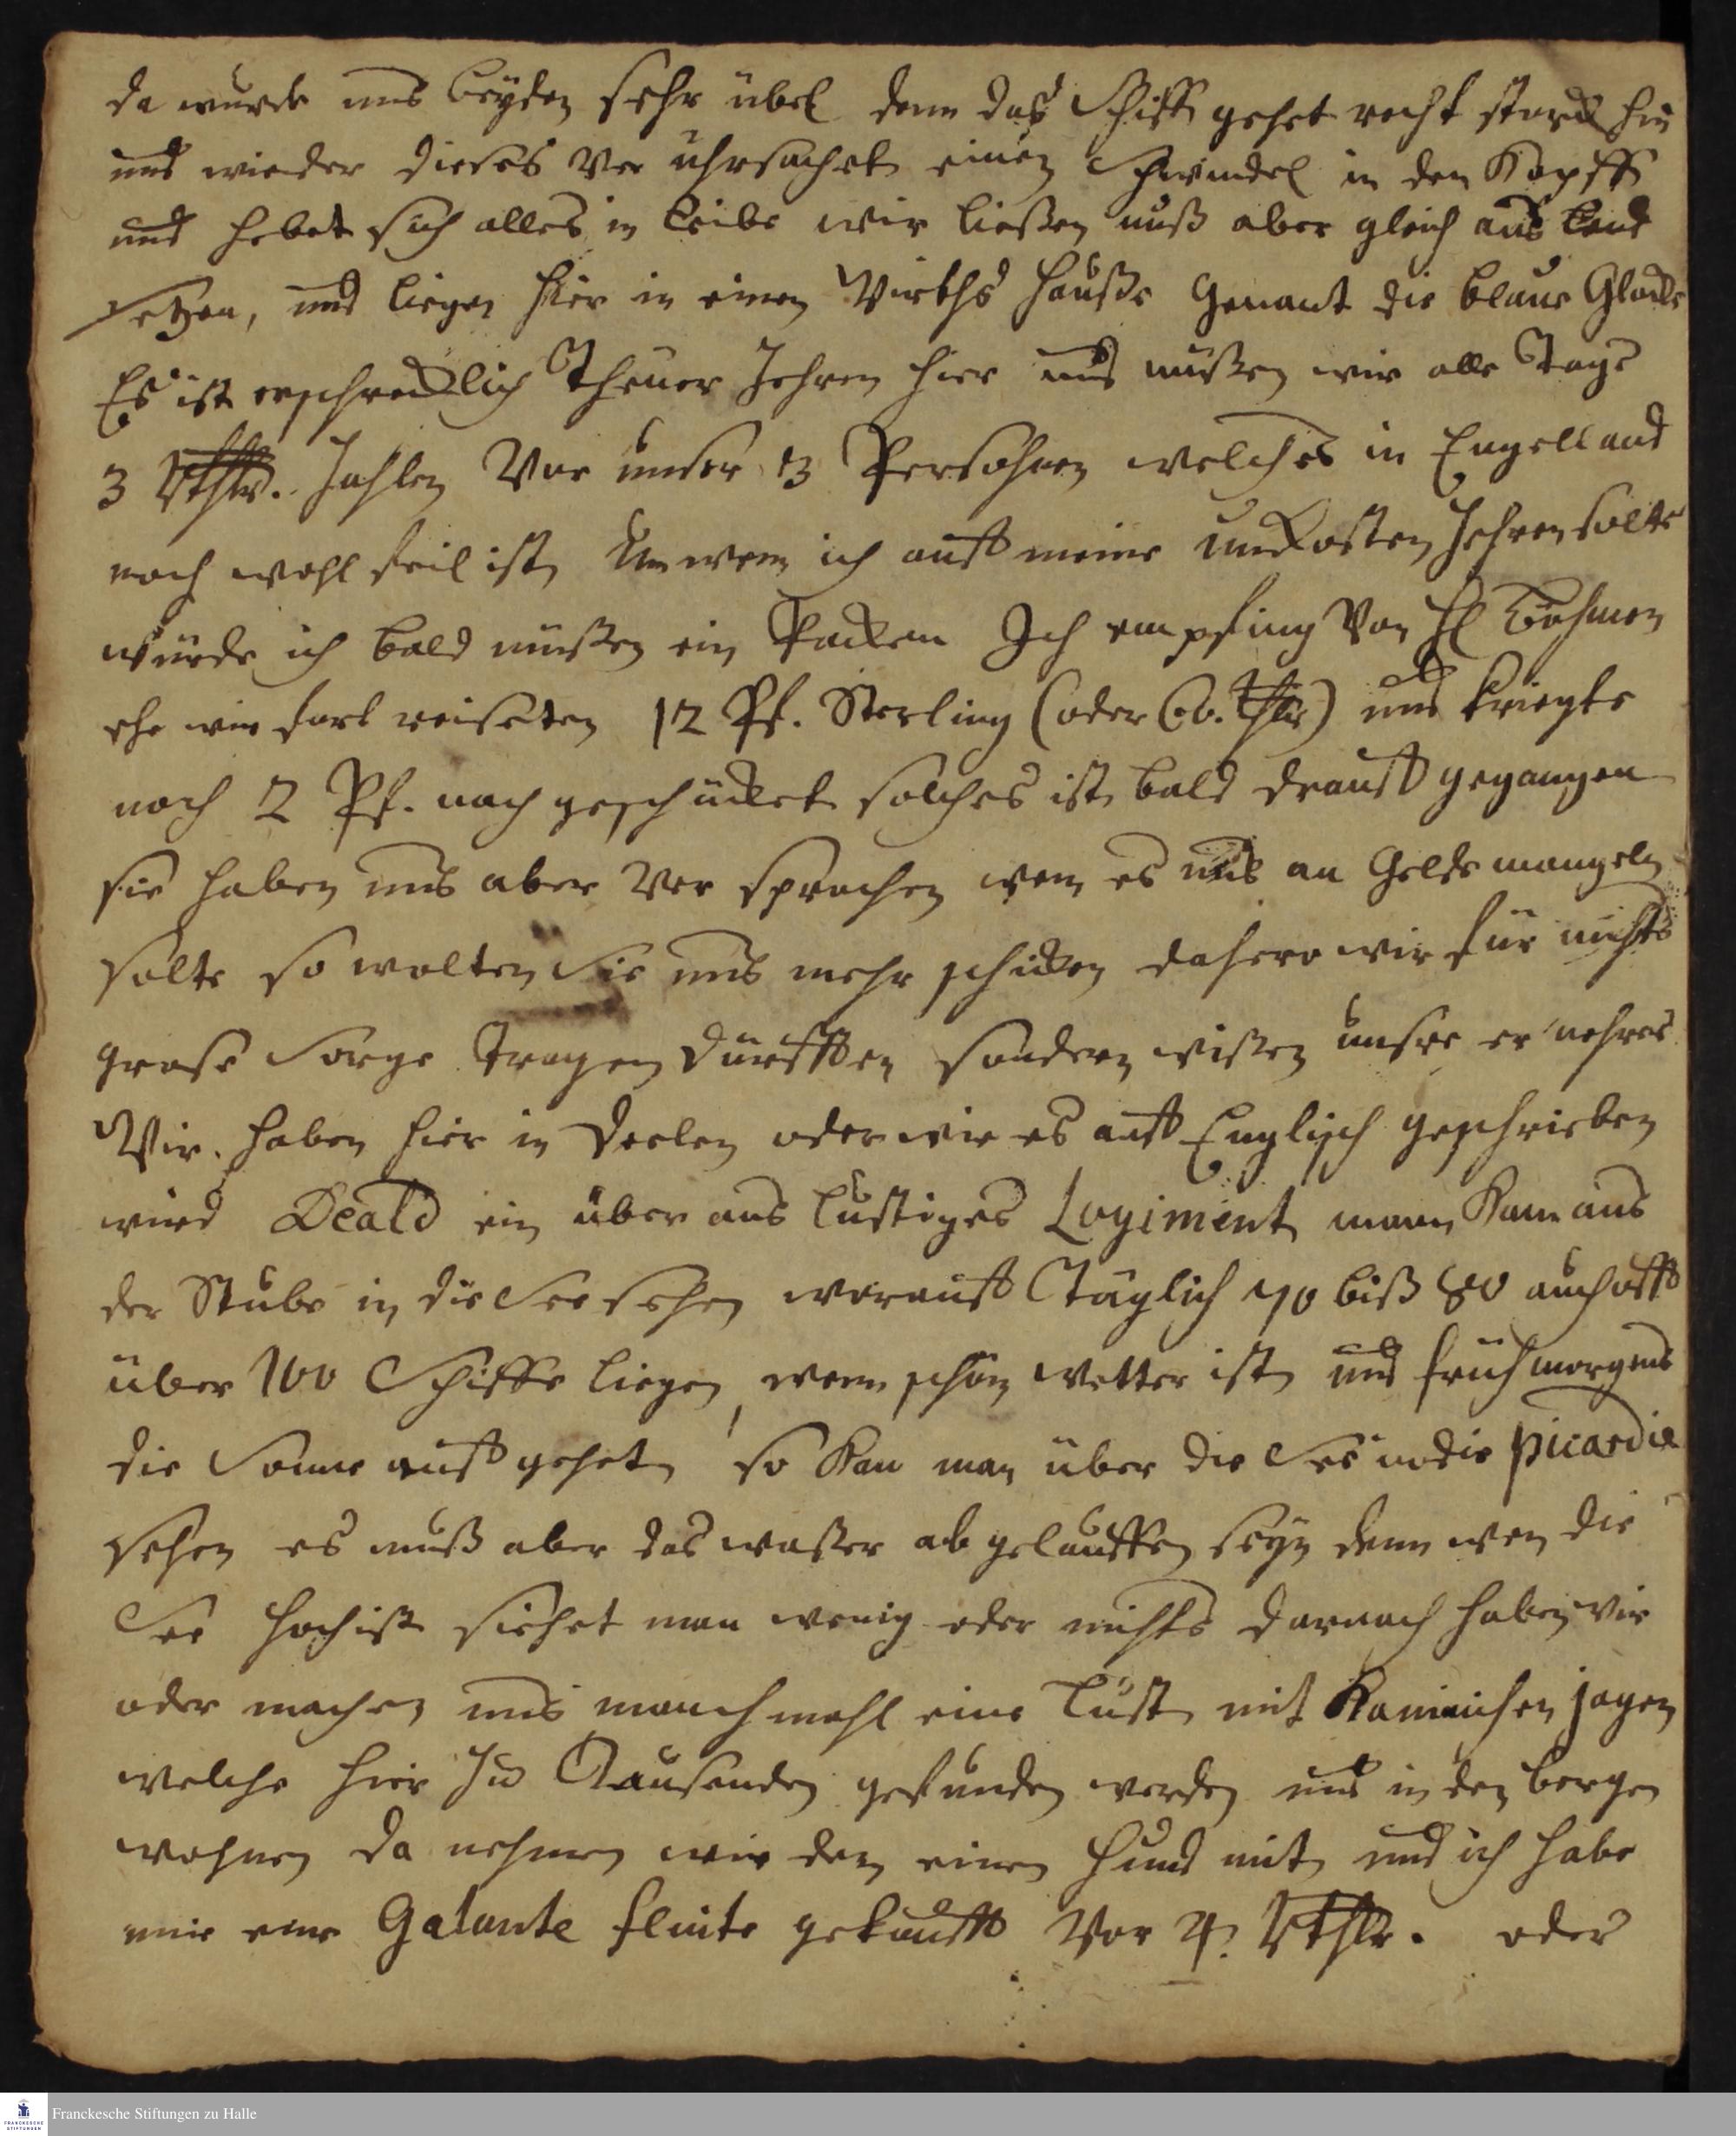 da wurde uns beyden sehr übel denn das Schiff gehet recht starck hin
und wieder dieses Ver uhrsachet einen Schwindel in den Kopff
und hebet sich alles in Leibe wir ließen unß aber gleich ans Land
setzen, und liegen hier in einen Wirths Hauße Genant die blaue Glocke
Es ist erschrecklich Theuer Zehren hier und müßen wir alle Tage
3 Rthlr. Zahlen Vor unser 3 Persohnen welches in Engelland
noch wohl feil ist, wenn ich auff meine Unkosten Zehren solte
würde ich bald müßen ein Packen Ich empfing Von H Böhmen
ehe wir fort reiseten 12 Pf. Sterling (oder 60. Thlr) und kriegte
noch 2 Pf. nach geschücket solches ist bald drauff gegangen
sie haben uns aber Ver sprochen wen es uns an Gelde mangeln
solte so wolten Sie uns mehr schicken dahero wir für nichts
grose Sorge Tragen dürfften sondern wißen unsre er nehrer
Wir haben hier in Deelen oder wie es auff Englisch geschrieben
wird Deald ein über aus lustiges Logiment mann Kan aus
der Stube in die See sehen worauff Täglich 70 biß 80 auch offt
über 100 Schiffe liegen, wenn schön wetter ist und früh morgens
die Sonne auff gehet, so Kan man über die See in die Picardie
sehen es muß aber das waßer ab gelauffen seyn denn wen die
See hoch ist siehet man wenig oder nichts darnach haben wir
oder machen uns manch mahl eine Lust mit Kaninchen jagen
welche hier Zu Tausenden gefunden werden und in den bergen
wohnen da nehmen wir den einen Hund mit und ich habe
mir eine Galante flinte gekaufft Vor 4. Rthlr. oder
Franckesche Stiftungen zu Halle